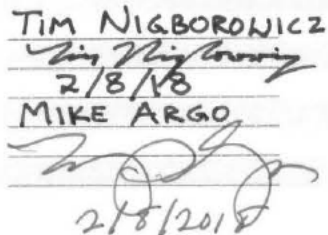 TIM NIGBOROWICZ
Tim Nigborowicz
2/8/18
MIKE ARGO
2/8/2018